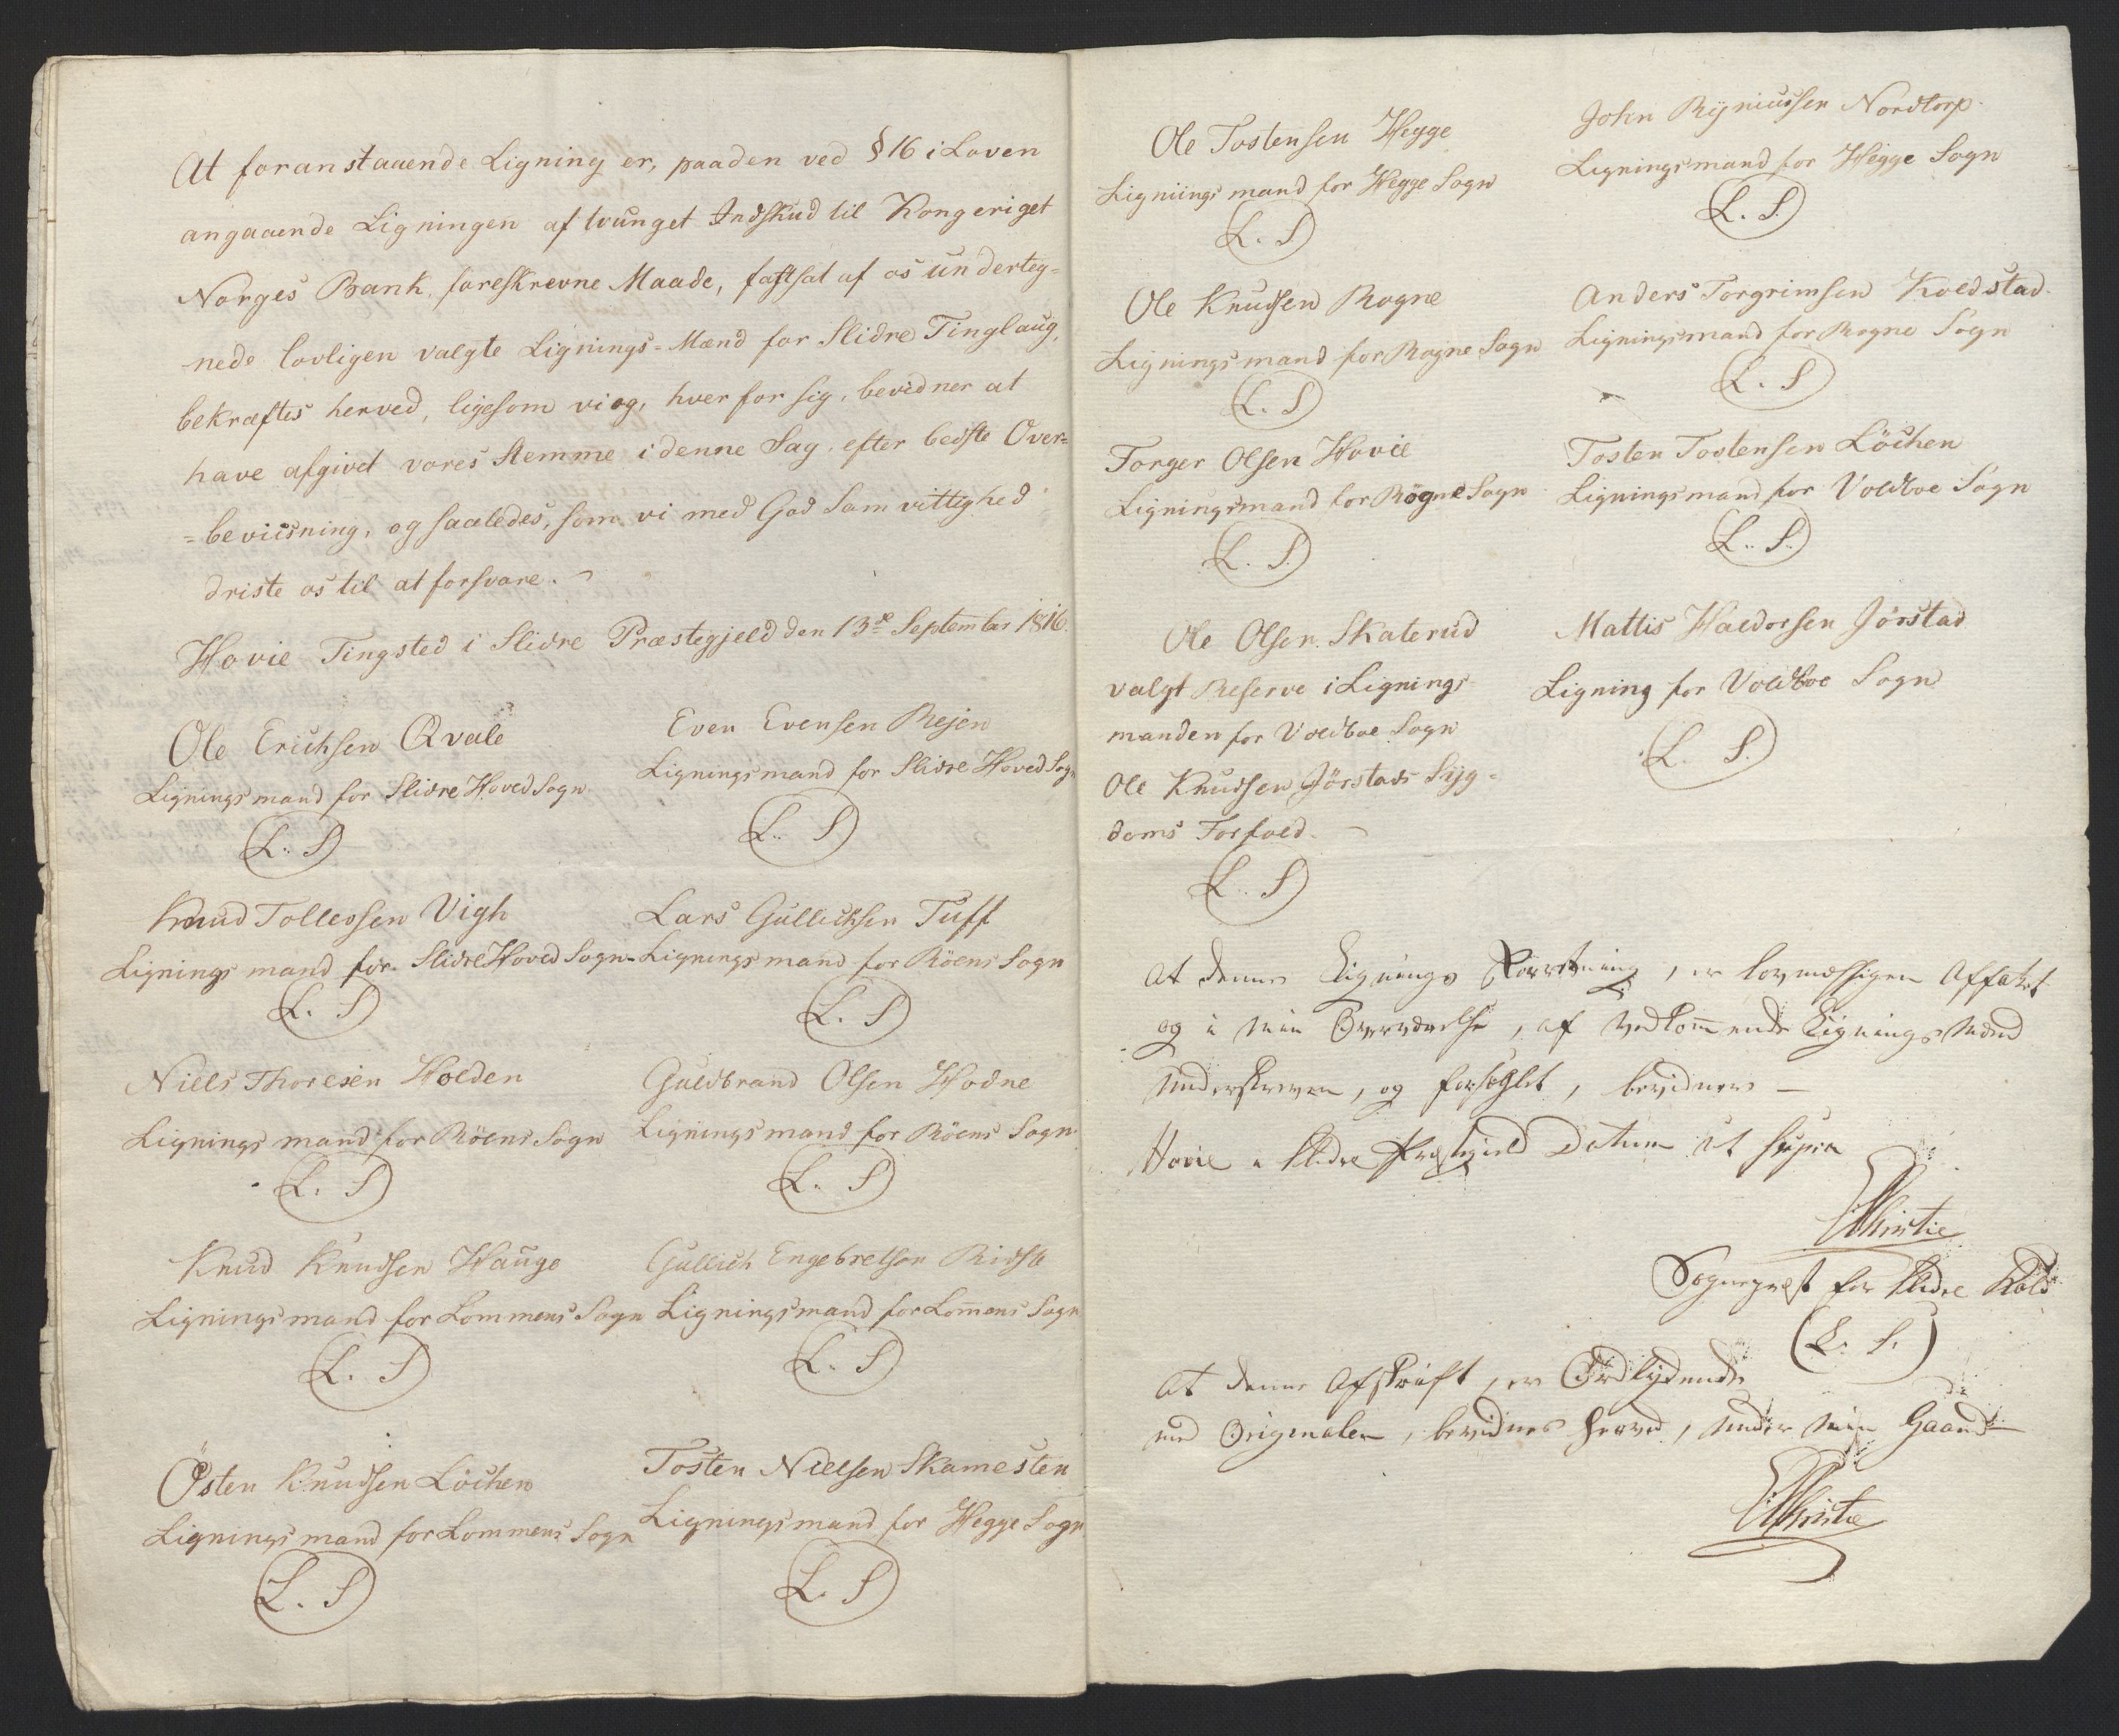 At foranstaaende Ligning er, paa den ved § 16 i Loven
angaaende Ligningen af tvunget Indskud til Kongeriget
Norges Bank, foreskrevne Maade, fastsat af os underteg-
nede lovligen valgte Lignings-Mænd for Slidre Tinglaug,
bekræftes herved, ligesom vi og, hver for sig, bevidner at
have afgivet vores Stemme i denne Sag, efter bedste Over-
=beviisning, og saaledes, som vi med God Samvittighed
driste os til at forsvare.
Hovie Tingsted i Slidre Præstegjeld den 13de September 1816.
Ole Erichsen Qvale
Ligningsmand for Slidre Hoved Sogn
L. S
Even Evensen Rejen
Ligningsmand for Slidre Hoved Sogn
L. S
Knud Tollevsen Vigh
Lignings mand for Slidre Hoved Sogn
L. S
Lars Gullichsen Tuff
Ligningsmand for Röens Sogn
L. S
Niels Thoresen Holden
Lignings mand for Röens Sogn
L. S
Guldbrand Olsen Hodne
Ligningsmand for Röens Sogn
L. S
Knud Knudsen Hauge
Lignings mand for Lommens Sogn
L. S
Gullich Engebretsen Ridste
Ligningsmand for Lom̅ens Sogn
L. S
Östen Knudsen Löchen
Lignings mand for Lommens Sogn
L. S
Tosten Nielsen Skamesten
Ligningsmand for Hegge Sogn
L. S
Ole Tostensen Hegge
Ligniings mand for Hegge Sogn
L. S
John Rÿniussen Nordtorp
Ligningsmand for Hegge Sogn
L. S.
Ole Knudsen Rogne
Ligningsmand for Rogne Sogn
L. S
Anders Torgrimsen Koldstad
Ligningsmand for Rogne Sogn
L. S
Torger Olsen Hovie
Ligningsmand for Rögne Sogn
L. S.
Tosten Tostensen Löchen
Ligningsmand for Voldboe Sogn
L. S.
Ole Olsen Skaterud
valgt Reserve i Lignings
manden for Voldboe Sogn
Ole Knudsen Jörstads Syg-
doms Forfald.
L. S
Mattis Haldorsen Jörstad
Ligning for Voldboe Sogn
L. S.
At denne Lignings Forretning, er lovmæssigen Affattet
og i min Overværelse, af vedkom̅ende Lignings Mænd
Underskreven, og forseglet, bevidner
Hovie i Slidre Præstegield Datum ut supra
Christie
Sogneprest for Slidre Kald
(L. S.)
At denne Afskrift, er Ordlydende
med Originalen, bevidnes herved, under min Haand
Christie